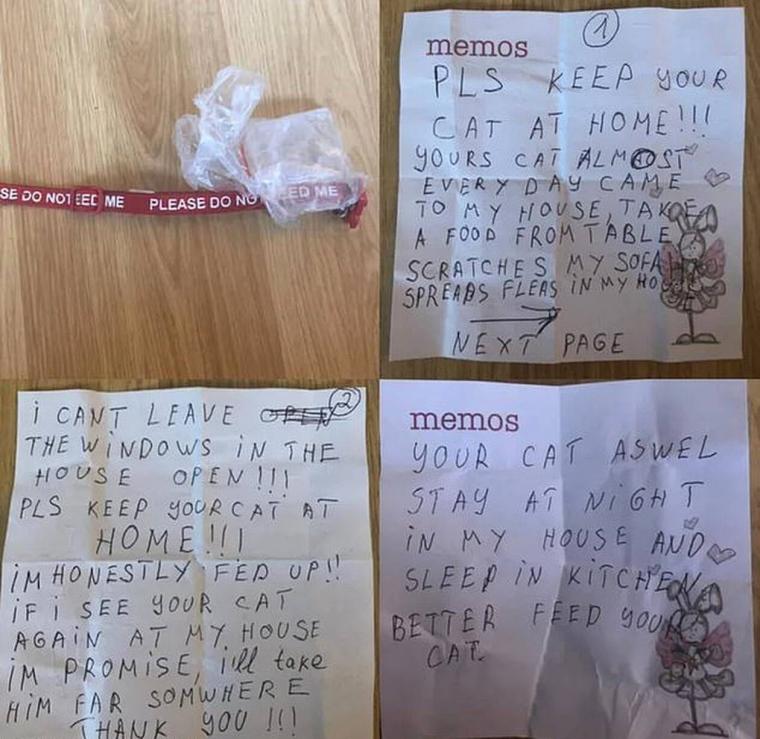 SE DO NOT EED ME PLEASE DO NO EED ME
1
memos
PLS KEEP YOUR
CAT AT HOME!!!
YOURS CAT ALMOST
EVERY DAY CAME
TO MY HOUSE, TAKE
A FOOD FROM TABLE
SCRATCHES MY SOFA
SPREADS FLEAS IN MY HOUSE
NEXT PAGE
2
i CANT LEAVE OPEN
THE WiNDOWS iN THE
HOUSE OPEN!!!
PLS KEEP YOUR CAT AT
HOME!!!
iM HONESTLY FED UP!!
iF i SEE YOUR CAT
AGAiN AT MY HOUSE
iM PROMiSE, i'll take
HiM FAR SOMWHERE
THANK YOU !!!
memos
YOUR CAT ASWEL
STAY AT NiGHT
iN MY HOUSE AND
SLEEP iN KiTCHEN
BETTER FEED YOUR
CAT.